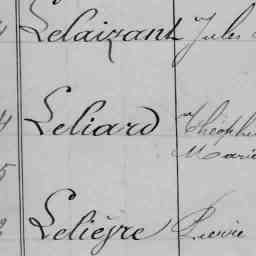 Lelaizant Jules
Leliard Théophi
Marie
Lelièvre Pierre